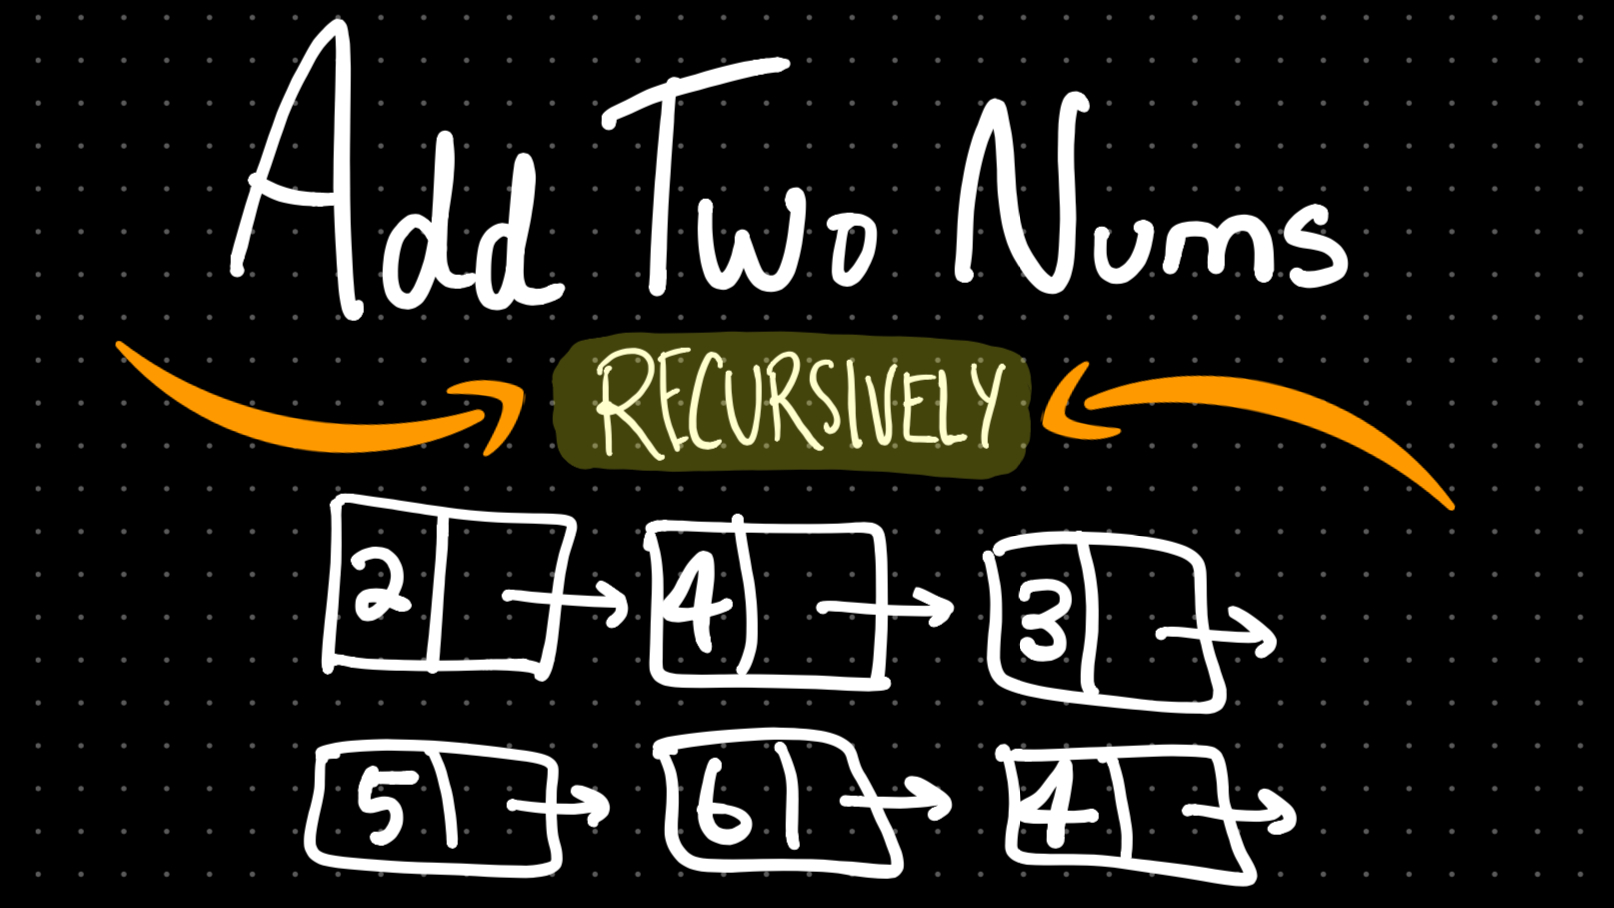 Add Two Nums
RECURSIVELY
2 4 3
5 6 4